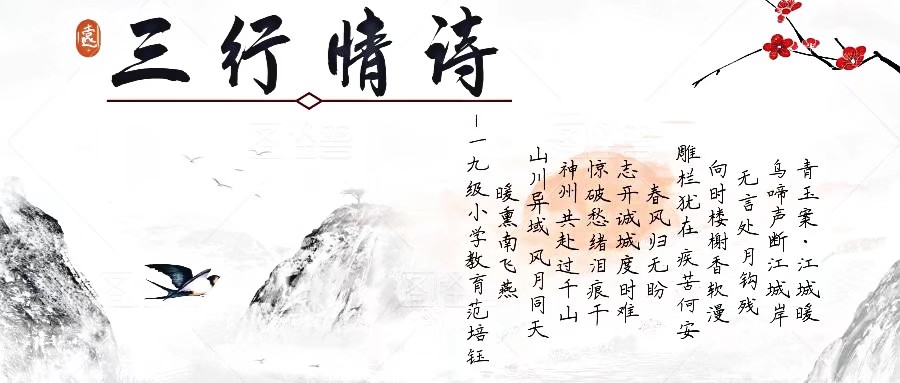 三行情诗
青玉案·江城暖
鸟啼声断江城岸
无言处月钩残
向时楼榭香软漫
雕栏犹在疾苦何安
春风归无盼
志开诚城度时难
惊破愁绪泪痕干
神州共赴过千山
山川异域风月同天
暖熏南飞燕
—一九级小学教育范培钰